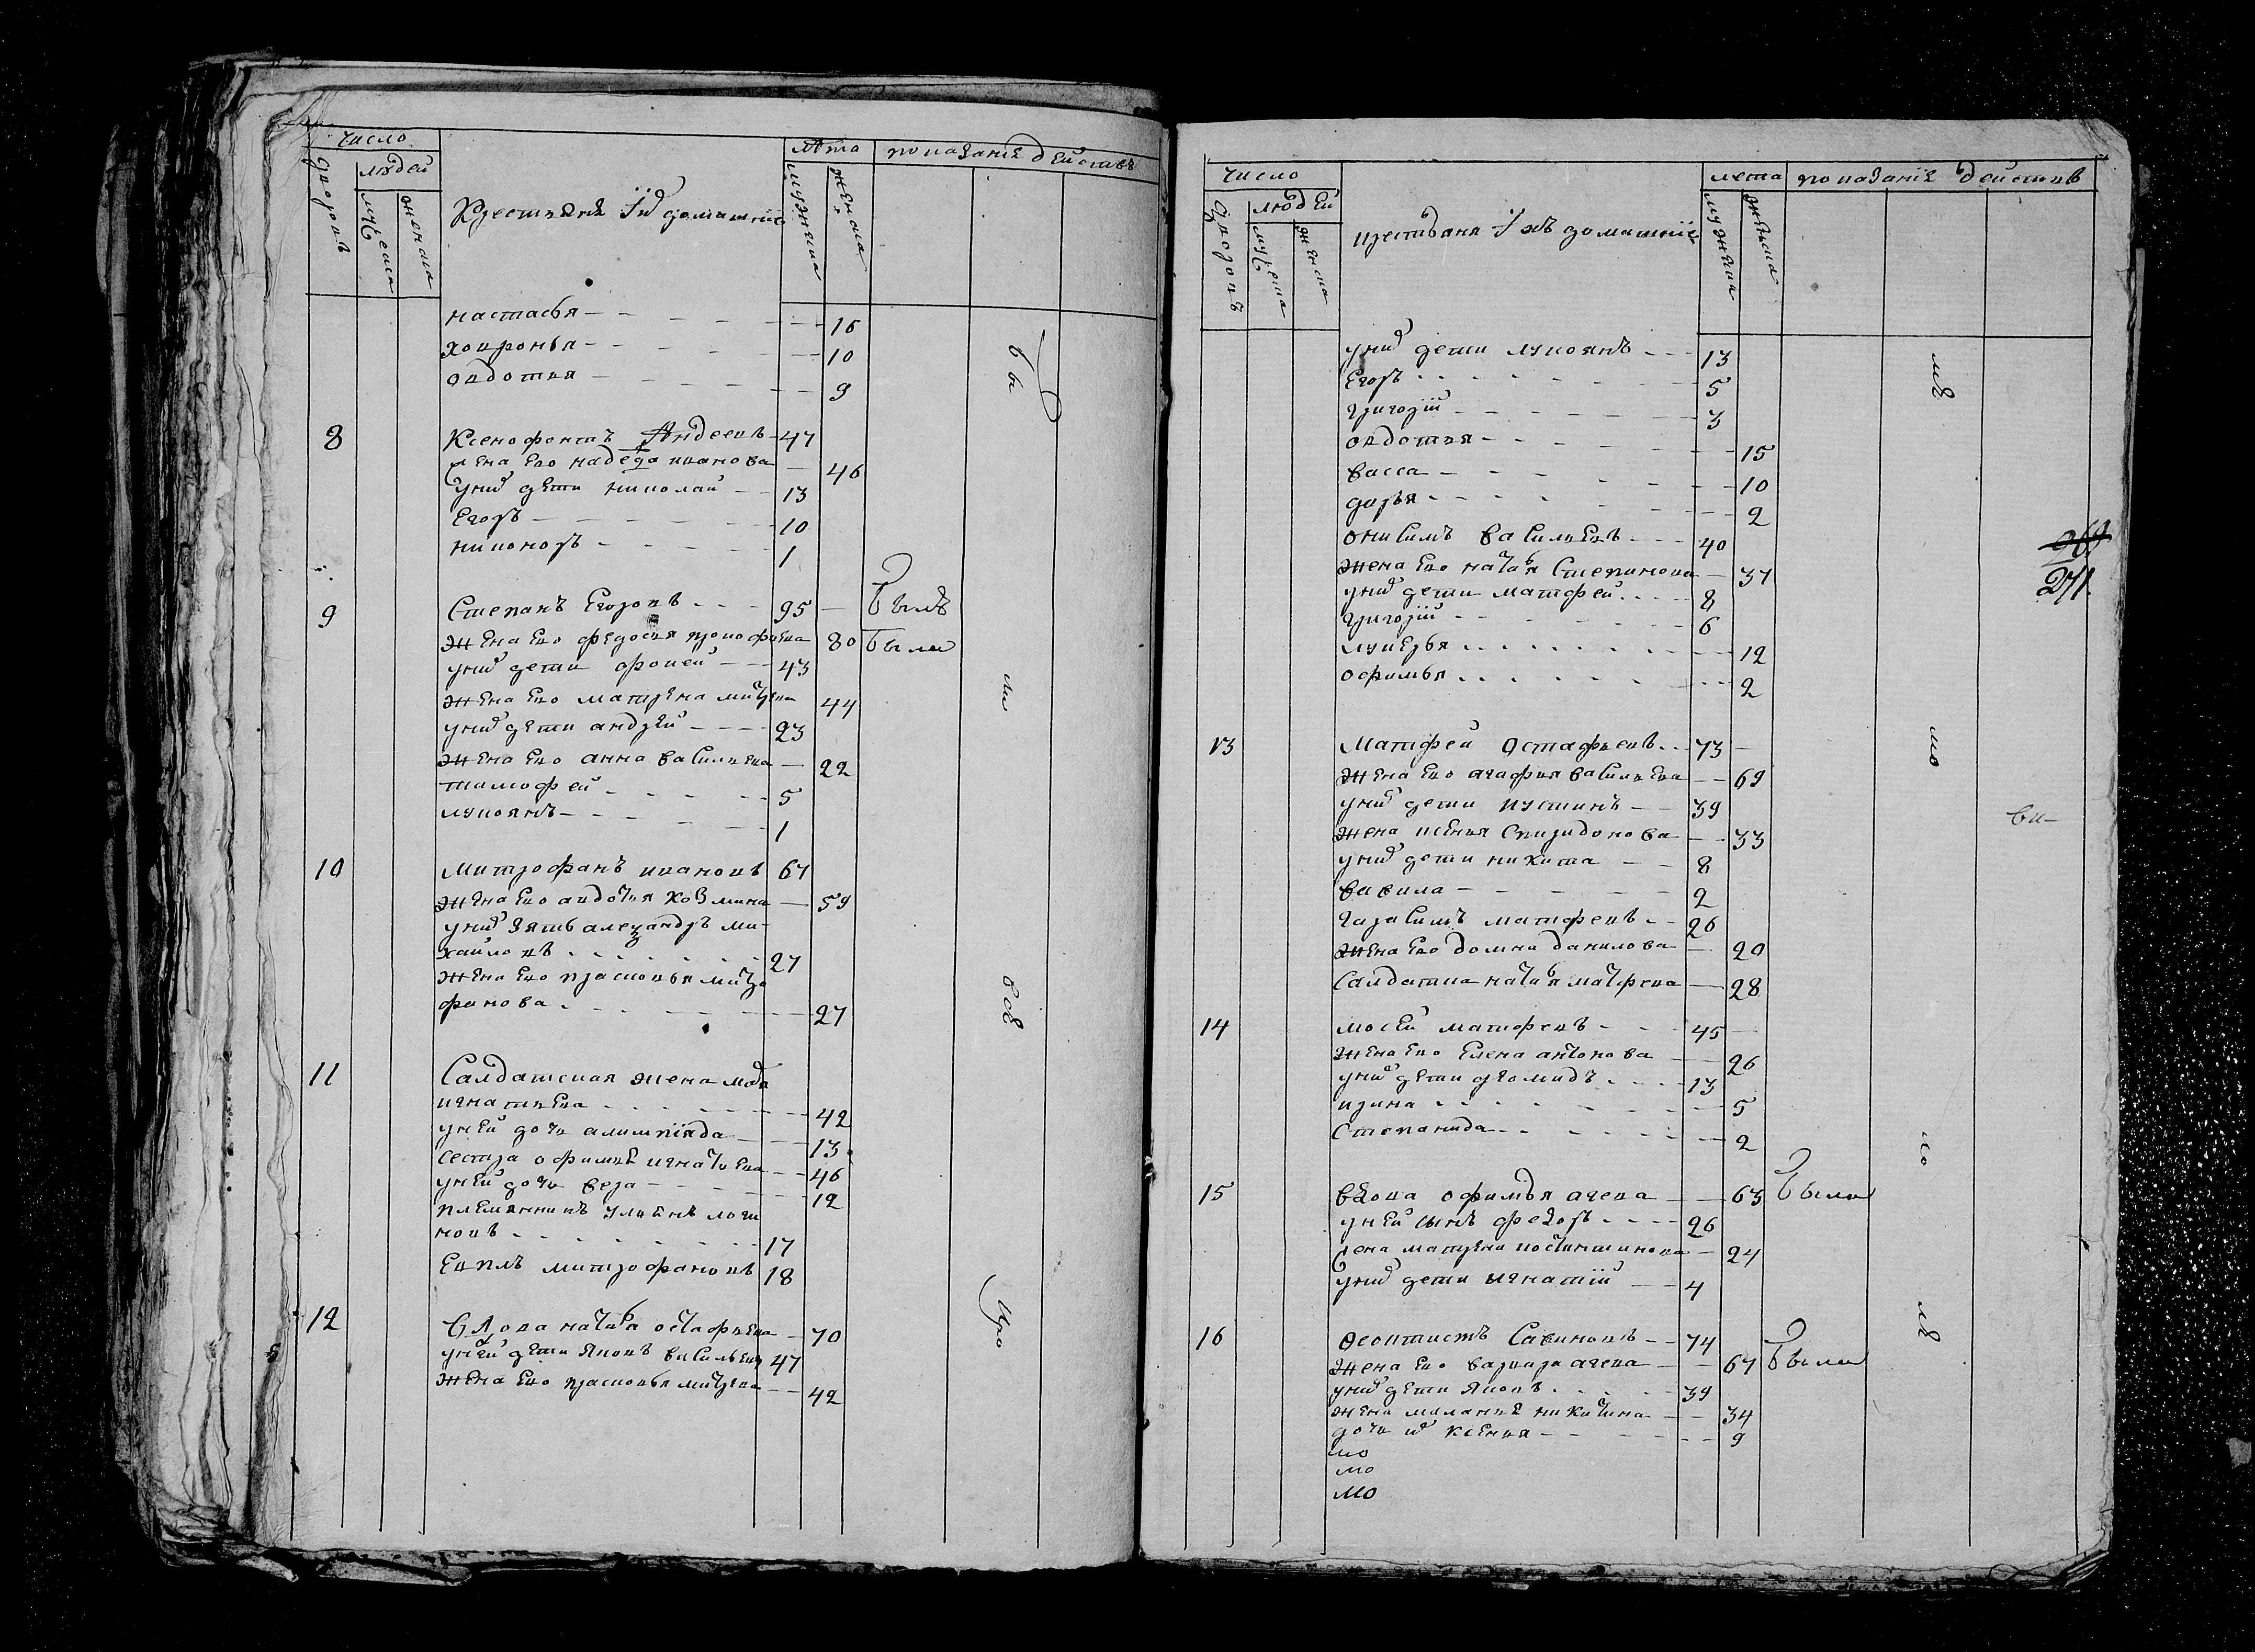 число
людей
дворовъ
мужеска
женска
Крестьяне Их домашніе
лѣта
мужеска
женска
показаніе действъ
настасья - - - 16
ховронья - - - 10
овдотия - - - 9
8 Ксенофонтъ Андеевъ - 47
жена ево надежда иванова - 46
у них дети николай - 13
Егоръ - - - 10
никоноръ - - - 1
9 Степанъ Егоровъ - - - 95 - былъ
жена ево федосия прокофиева 80 была
у них дети фокей - - - 43
жена ево матрена митрева 44
у них дети андрей - - - 23
жена ево анна василиева - 22
тимофей - - - 5
лукоянъ - - - 1
10 митрофанъ ивановъ 67
жена ево авдотия козмина - 59
у них зять александръ ми-
хайловъ - - - 27
жена ево прасковья митро
фанова - - - 27
11 Салдатская жена
игнатиева - - - 42
у ней дочь алимпіяда - - - 13
сестра офимиѣ игнатиева - - 46
у ней дочь вера - - - 12
племянникъ
новъ - - - 17
митрофановъ 18
12 вдова наталья остафиева - 70
у ней дети яковъ василиевъ 47
жена ево прасковья митрева - - 42
бы
ли
вое
число
людей
дворовъ
мужеска
женска
крестьяня Ихъ домашніе
лета
мужеска
женска
показаніе действъ
у них дети лукоянъ - - - 13
Егоръ - - - 5
григорій - - - 3
овдотия - - - 15
васса - - - 10
дарья - - - 2
онисимъ василиевъ - - - 40
жена ево наталья Степанова - 37
у них дети матфей - - - 8
григорій - - - 6
лукерья - - - 12
офимья - - - 2
13 Матфей Остафиевъ - - 73 -
жена ево агафия василиева - - 69
у них дети иустинъ - - 39
жена ксения Спиридонова - - 33
у них дети никита - - 8
вавила - - - 2
гарасимъ матфеевъ - - 26
жена ево домна данилова - 20
Салдатка наталья матфеева - 28
14 мосей матфеевъ - - - 45 -
жена ево Елена антонова - - 26
у них дети деомидъ - - - 13
ирина - - - 5
Степанида - - - 2
15 вдова офимья - - 63 была
у ней сынъ федоръ - - - 26
жена матрена костантинова - 24
у них дети игнатій - - 4
16 феоктистъ Савиновъ - - 74
жена ево варвара - - 67 была
у них дети яковъ - - - 39
жена маланиѣ никитина - - 34
дочь их ксения - - - 9
мо
мо
мо
мо
271